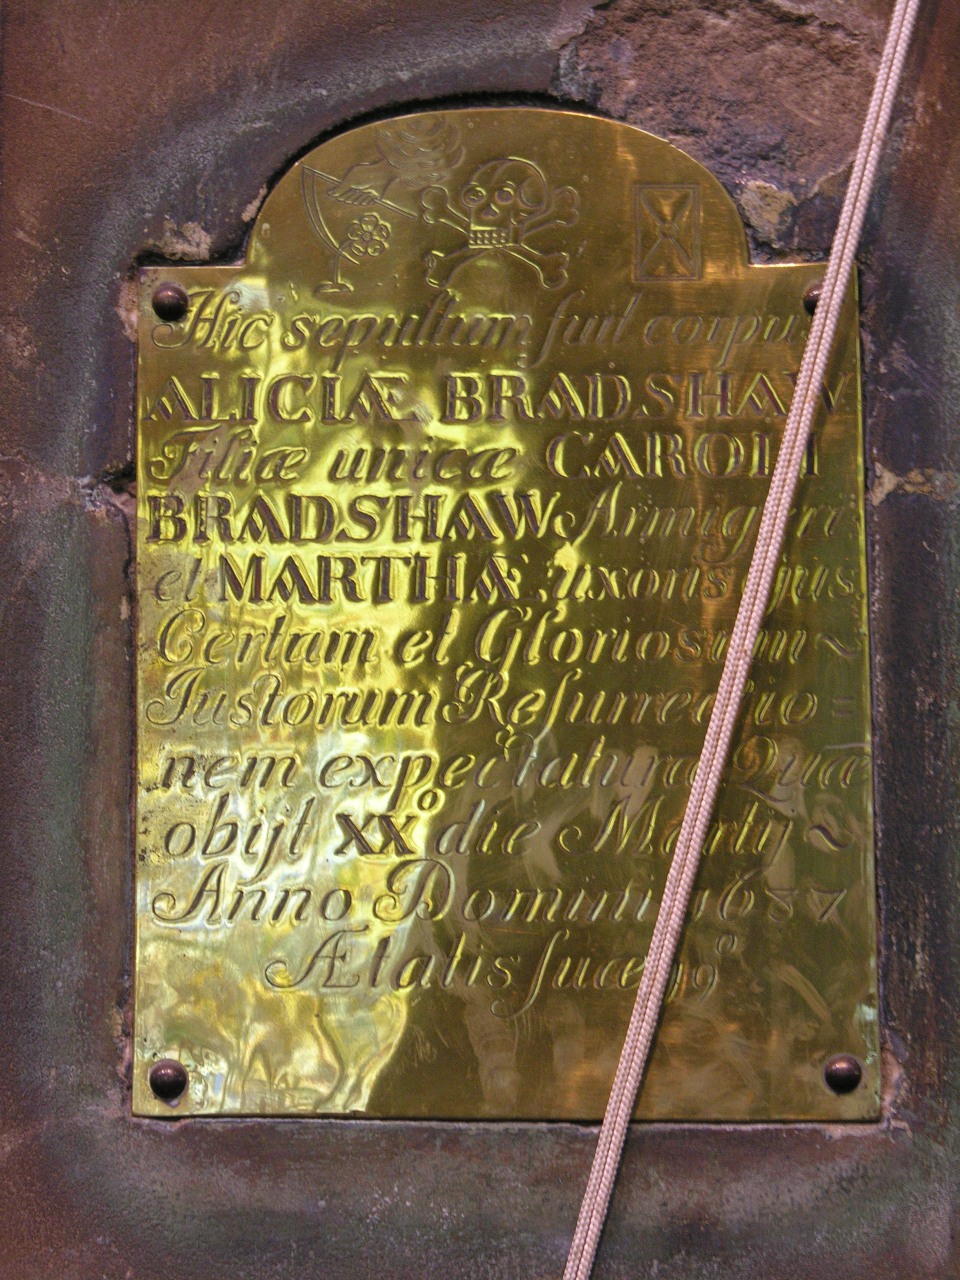 Hic sepultum fuit corpus
ALICIÆ BRADSHAW
Filiæ unicæ CAROLI
BRADSHAW Armigeri
et MARTHÆ uxoris ejus.
Certam et Gloriosam ~
Justorum Resurrectio=
nem expectatura Quæ
obijt XXº die Martij ~
Anno Domini 1687
Ætatis suæ 19º